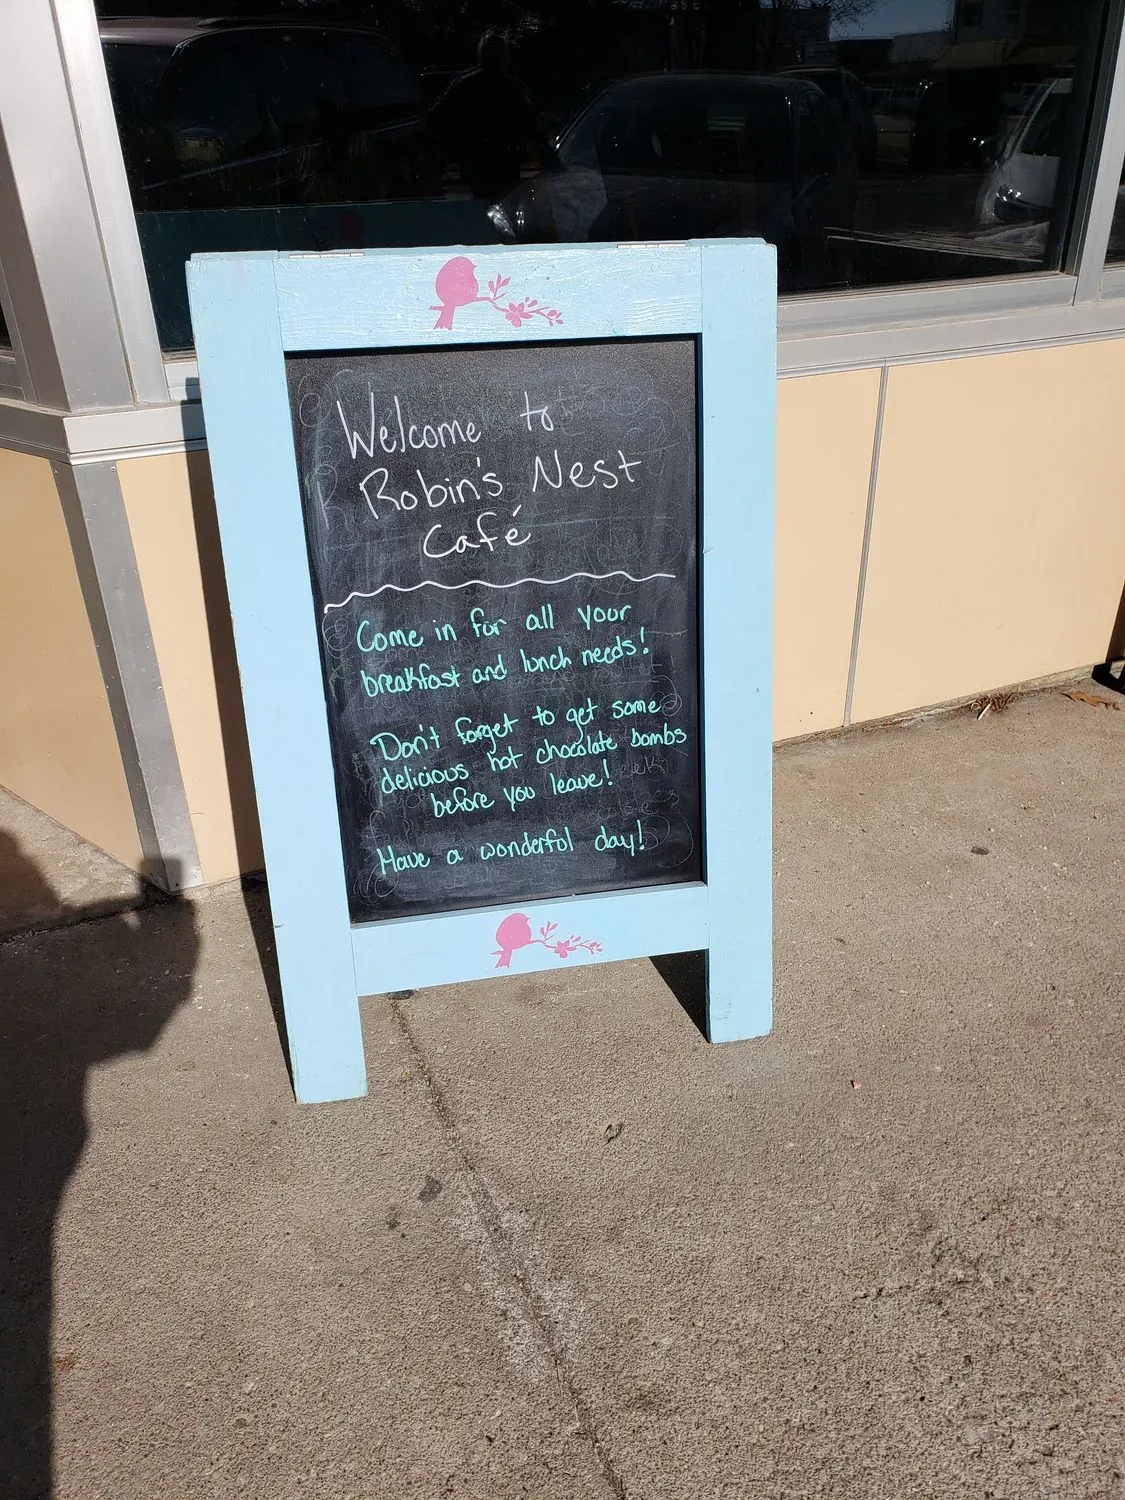 Welcome to
Robin's Nest
Café
Come in for all your
breakfast and lunch needs!
Don't forget to get some
delicious hot chocolate bombs
before you leave!
Have a wonderful day!